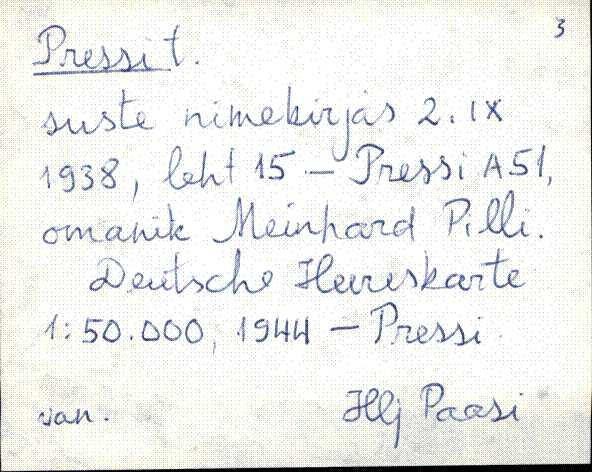 3
Pressi t.
suste nimekirjas 2. IX
1938, leht 15 – Pressi A51,
omanik Meinhard Pilli.
Deutsche Heereskarte
1:50.000, 1944 – Pressi
van. Hlj Paasi